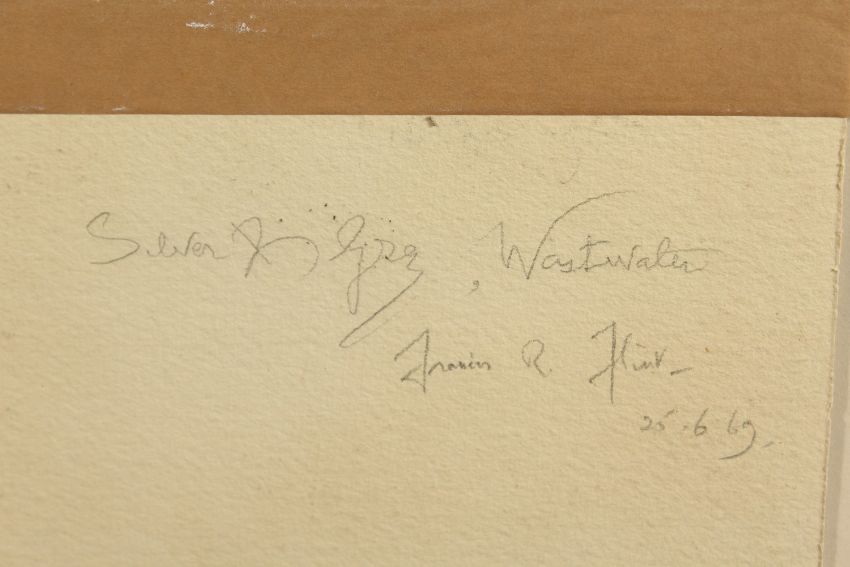 Silver & Grey, Wastwater
Francis R. Flint
25.6.69.